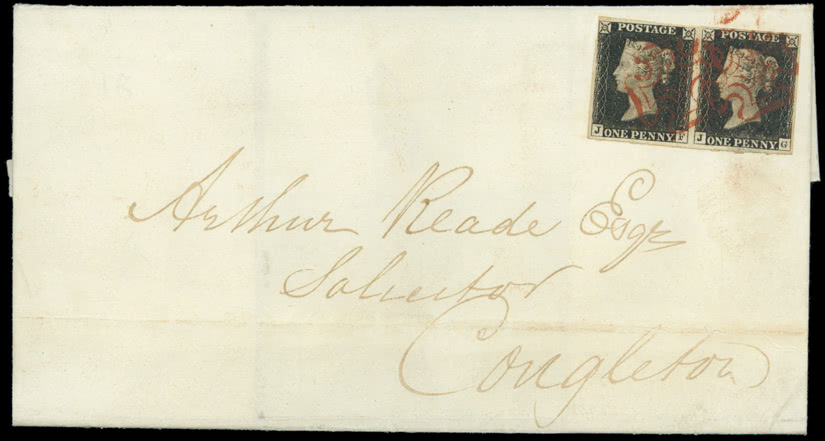 POSTAGE POSTAGE
J ONE PENNY F J ONE PENNY G
Arthur Reade Esqr
Solicitor
Congleton